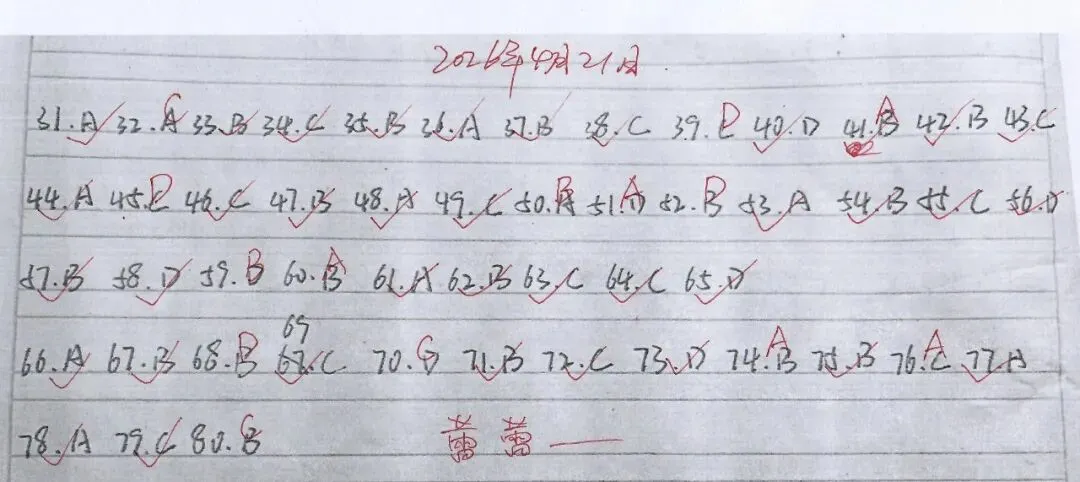 2026年4月21日
31.A 32.A 33.B 34.C 35.B 36.A 37.B 38.C 39. 40.D 41.B 42.B 43.C
44.A 45. 46.C 47.B 48.A 49.C 50. 51. 52.B 53.A 54.B 55.C 56.D
57.B 58.D 59.B 60.B 61.A 62.B 63.C 64.C 65.D
66.A 67.B 68.B 69.C 70. 71.B 72.C 73.D 74.B 75.B 76.C 77.A
78.A 79.C 80.B